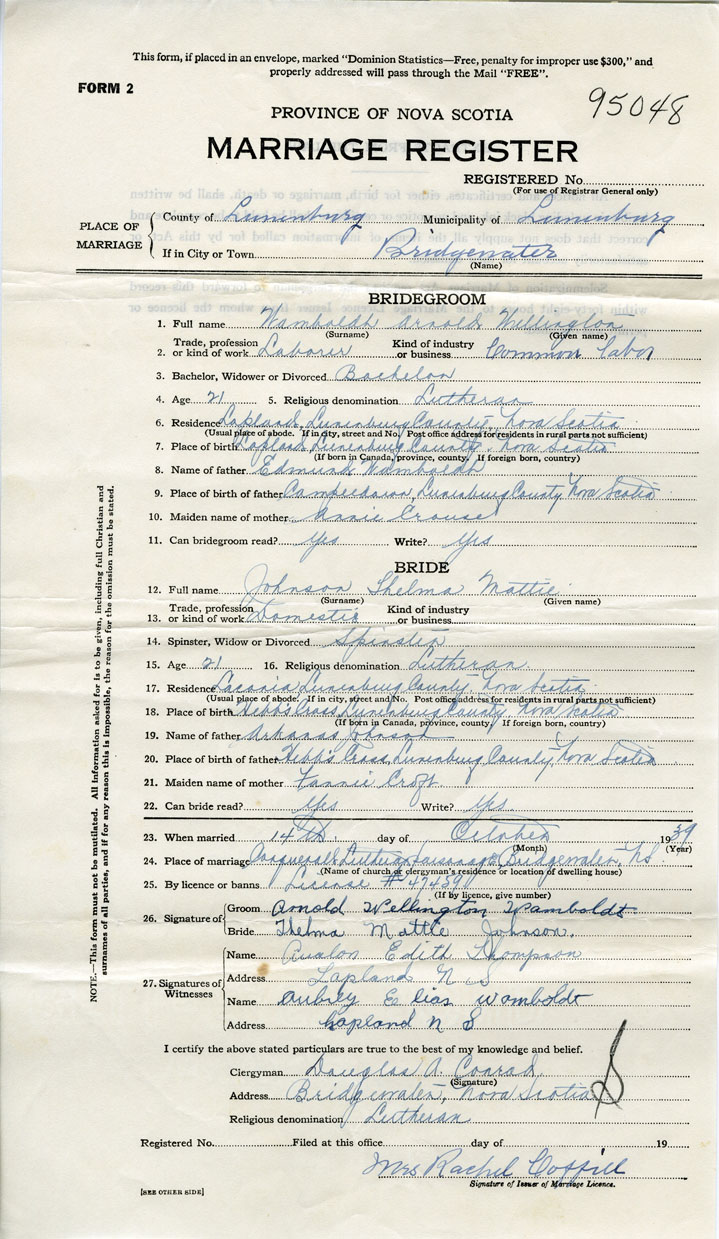 This form, if placed in an envelope, marked "Dominion Statistics—Free, penalty for improper use $300," and
properly addressed will pass through the Mail "FREE".
FORM 2
95048
PROVINCE OF NOVA SCOTIA
MARRIAGE REGISTER
REGISTERED No.
(For use of Registrar General only)
PLACE OF MARRIAGE
County of Lunenburg Municipality of Lunenburg
If in City or Town Bridgewater
(Name)
BRIDEGROOM
1. Full name Wamboldt Arnold Wellington
(Surname) (Given name)
2. Trade, profession or kind of work Laborer Kind of industry or business Common Labor
3. Bachelor, Widower or Divorced Bachelor
4. Age 21 5. Religious denomination Lutheran
6. Residence Lapland, Lunenburg County, Nova Scotia
(Usual place of abode. If in city, street and No. Post office address for residents in rural parts not sufficient)
7. Place of birth Lapland, Lunenburg County, Nova Scotia
(If born in Canada, province, county. If foreign born, country)
8. Name of father Edmund Wamboldt
9. Place of birth of father Lunenburg County Nova Scotia
10. Maiden name of mother Annie Crouse
11. Can bridegroom read? Yes Write? Yes
BRIDE
12. Full name Johnson Thelma Mattie
(Surname) (Given name)
13. Trade, profession or kind of work Domestic Kind of industry or business
14. Spinster, Widow or Divorced Spinster
15. Age 21 16. Religious denomination Lutheran
17. Residence Lunenburg County, Nova Scotia
(Usual place of abode. If in city, street and No. Post office address for residents in rural parts not sufficient)
18. Place of birth Hebb's Cross, Lunenburg County, Nova Scotia
(If born in Canada, province, county. If foreign born, country)
19. Name of father Arkanas Johnson
20. Place of birth of father Hebb's Cross, Lunenburg County, Nova Scotia
21. Maiden name of mother Fannie Croft
22. Can bride read? Yes Write? Yes
23. When married 14th day of October 1939
(Month) (Year)
24. Place of marriage Lutheran Parsonage, Bridgewater, N.S.
(Name of church or clergyman's residence or location of dwelling house)
25. By licence or banns License
(If by licence, give number)
26. Signature of
Groom Arnold Wellington Wamboldt
Bride Thelma Mattie Johnson.
27. Signatures of Witnesses
Name Avalon Edith Thompson
Address Lapland N S
Name Aubrey Elias Wamboldt
Address Lapland N S
I certify the above stated particulars are true to the best of my knowledge and belief.
Clergyman Douglas A. Conrad
(Signature)
Address Bridgewater, Nova Scotia
Religious denomination Lutheran
Registered No. Filed at this office day of 19
Mrs Rachel Coffill
Signature of Issuer of Marriage Licence.
[SEE OTHER SIDE]
NOTE.—This form must not be mutilated. All information asked for is to be given, including full Christian and
surnames of all parties, and if for any reason this is impossible, the reason for the omission must be stated.